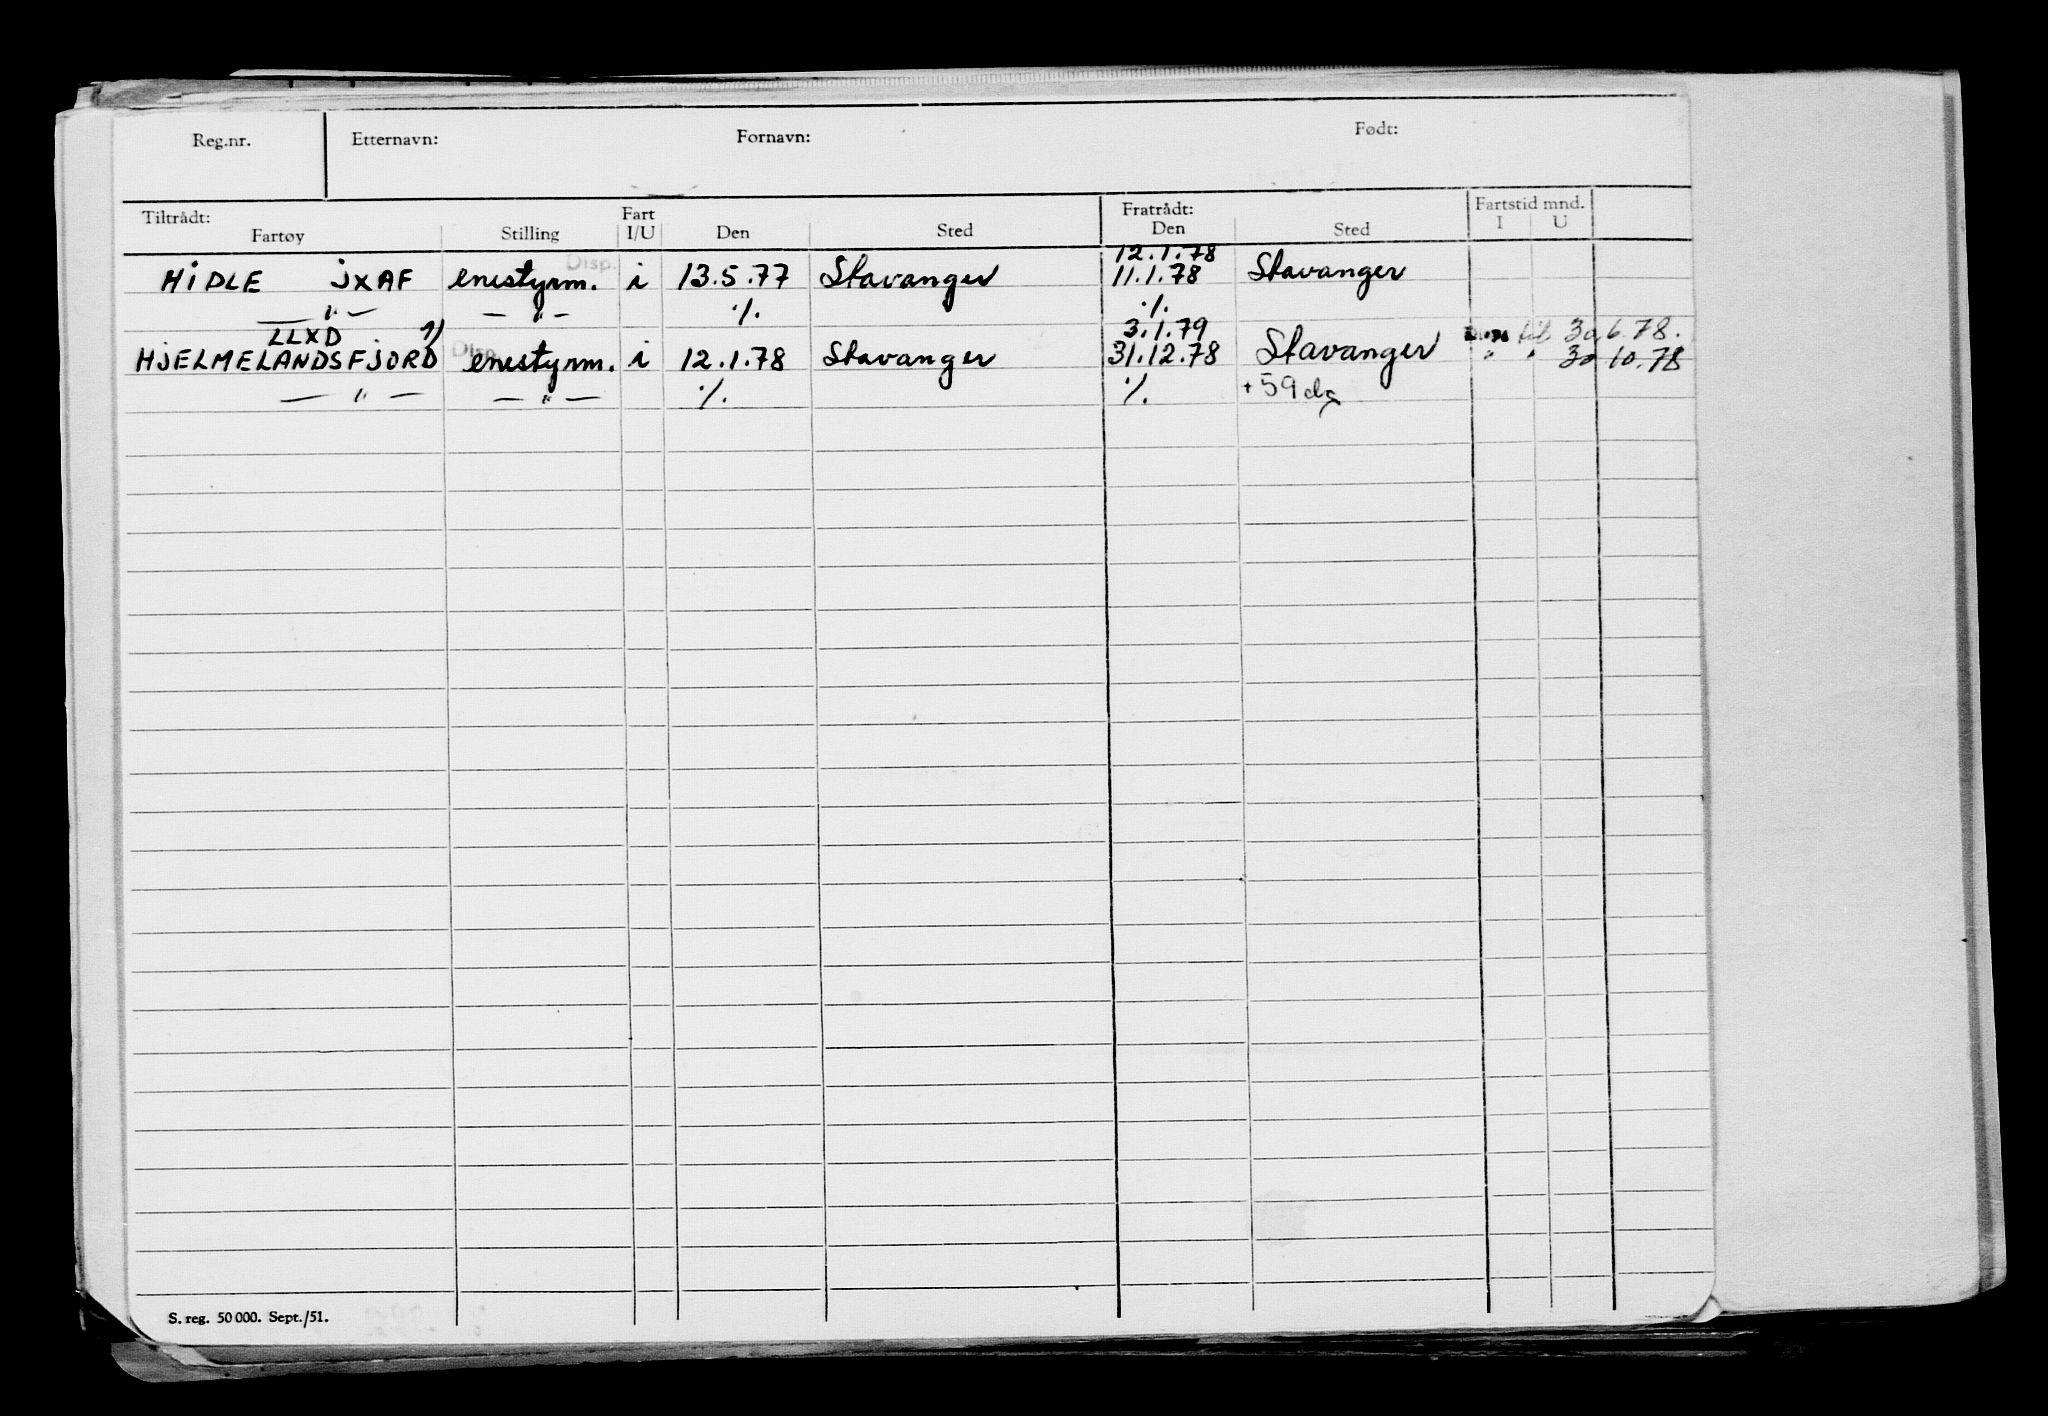 Reg.nr. Etternavn: Fornavn: Født:
Tiltrådt: Fart Fratrådt: Fartstid mnd.
Fartøy Stilling I/U Den Sted Den Sted I U
Disp. 12.1.78
HiDLE jXAF enestyrm. i 13.5.77 Stavanger 11.1.78 Stavanger
— " — — " — ·/. ·/.
LLXD 3.1.79 til 30.6.78.
HjELMELANDSFjORD Disp. enestyrm. i 12.1.78 Stavanger 31.12.78 Stavanger " " 30.10.78
— " — — " — ·/. ·/. + 59 dg
S. reg. 50 000. Sept./51.